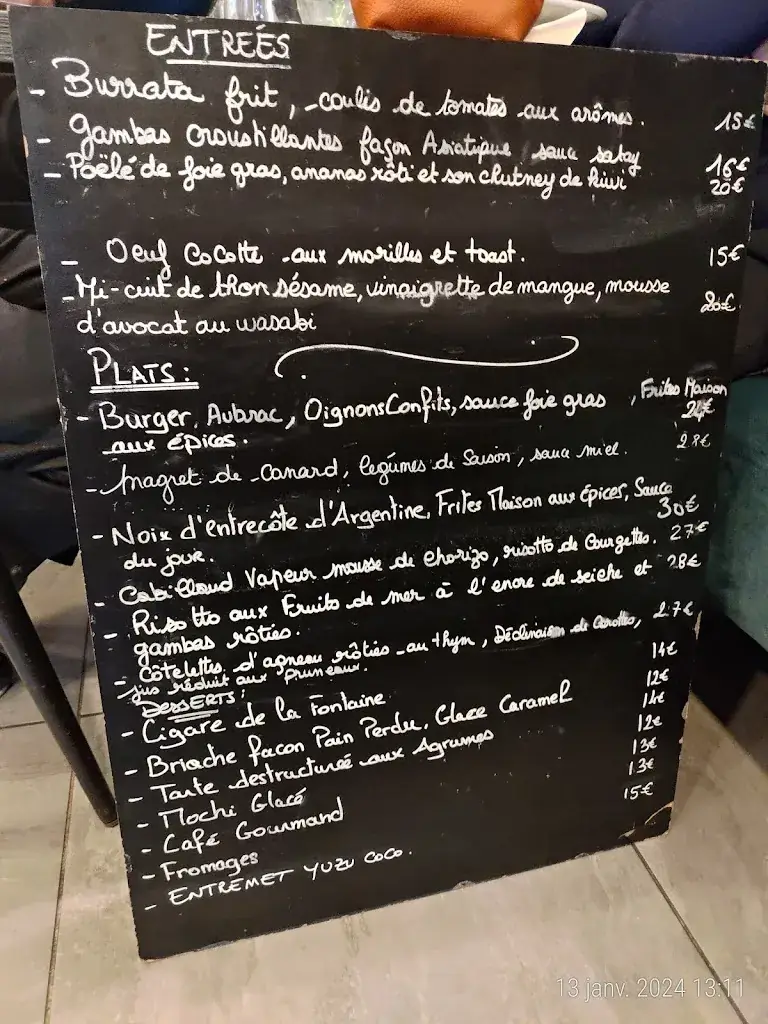 ENTREÉS
- Burrata frit, coulis de tomates aux arômes. 15€
- Gambas croustillantes façon Asiatique sauce satay 16€
- Poëlé de foie gras, ananas rôti et son chutney de kiwi 20€
- Oeuf Cocotte aux morilles et toast. 15€
- Mi-cuit de thon sésame, vinaigrette de mangue, mousse 20€
d'avocat au wasabi
PLATS:
- Burger, Aubrac, Oignons Confits, sauce foie gras, Frites Maison
aux épices. 24€
- Magret de Canard, légumes de Saison, sauce miel. 28€
- Noix d'entrecôte d'Argentine, Frites Maison aux épices, Sauce
du jour. 30€
- Cabillaud Vapeur mousse de chorizo, risotto de Courgettes. 27€
- Risotto aux Fruits de mer à l'encre de seiche et 28€
gambas rôties.
- Côtelettes d'agneau rôties au thym, Déclinaison de Carottes, 27€
jus réduit aux Pruneaux.
DESSERTS:
- Cigare de la Fontaine 14€
- Brioche façon Pain Perdu, Glace Caramel 12€
- Tarte destructurée aux Agrumes 14€
- Mochi Glacé 12€
- Café Gourmand 13€
- Fromages 13€
- ENTREMET YUZU COCO. 15€
13 janv. 2024 13:11